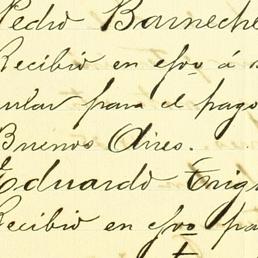 Pedro Barneche
Recibió en efvo á
tular para el pago
Buenos Aires.
Eduardo Trig
Recibió en efvo pa